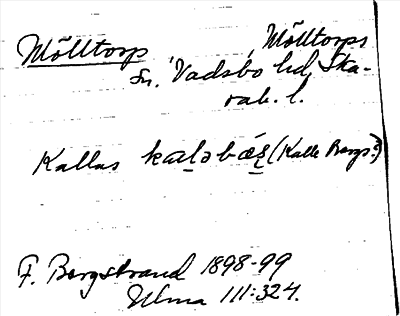 Mölltorp Mölltorps
sn, Vadsbo hd, Ska-
rab. l.
Kallas (Kalle Bergs?)
F. Bergstrand 1898-99
Ulma 111:324.